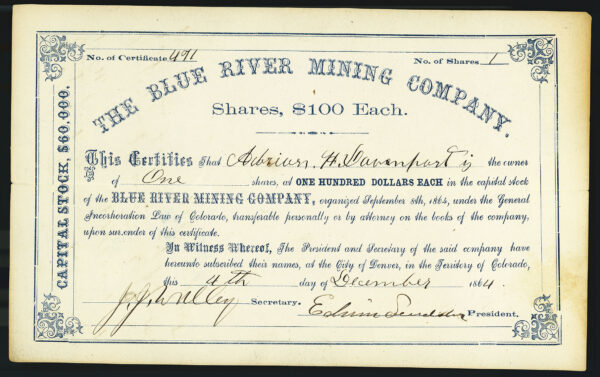 No. of Certificate 491
No. of Shares 1
THE BLUE RIVER MINING COMPANY.
Shares, $100 Each.
CAPITAL STOCK, $60,000.
This Certifies That Adrian H. Davenport is the owner
of One shares, at ONE HUNDRED DOLLARS EACH in the capital stock
of the BLUE RIVER MINING COMPANY, organized September 8th, 1864, under the General
Incorporation Law of Colorado, transferable personally or by attorney on the books of the company,
upon surrender of this certificate.
In Witness Whereof, The President and Secretary of the said company have
hereunto subscribed their names, at the City of Denver, in the Territory of Colorado,
this 4th day of December 1864.
Secretary.
Edwin President.